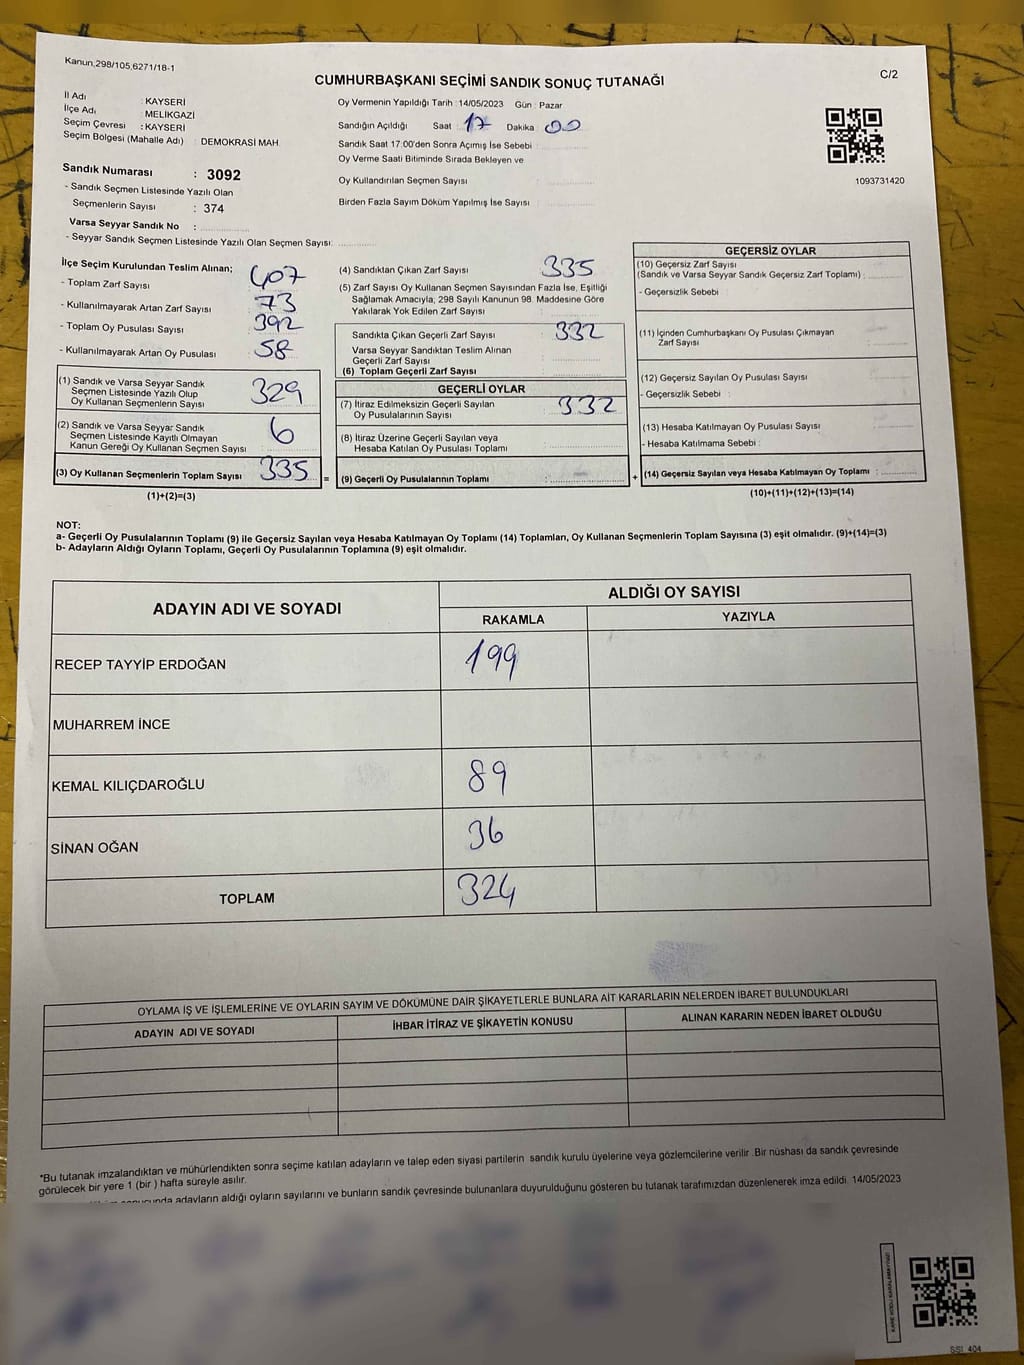 Kanun,298/105,6271/18-1
C/2
CUMHURBAŞKANI SEÇİMİ SANDIK SONUÇ TUTANAĞI
İl Adı : KAYSERİ
İlçe Adı : MELİKGAZİ
Seçim Çevresi : KAYSERİ
Seçim Bölgesi (Mahalle Adı) : DEMOKRASİ MAH.
Sandık Numarası : 3092
- Sandık Seçmen Listesinde Yazılı Olan
Seçmenlerin Sayısı : 374
Varsa Seyyar Sandık No :
- Seyyar Sandık Seçmen Listesinde Yazılı Olan Seçmen Sayısı:
Oy Vermenin Yapıldığı Tarih : 14/05/2023 Gün : Pazar
Sandığın Açıldığı Saat : 17 Dakika 00
Sandık Saat 17:00'den Sonra Açılmış İse Sebebi :
Oy Verme Saati Bitiminde Sırada Bekleyen ve
Oy Kullandırılan Seçmen Sayısı :
Birden Fazla Sayım Döküm Yapılmış İse Sayısı :
1093731420
İlçe Seçim Kurulundan Teslim Alınan;
- Toplam Zarf Sayısı : 407
- Kullanılmayarak Artan Zarf Sayısı : 73
- Toplam Oy Pusulası Sayısı : 392
- Kullanılmayarak Artan Oy Pusulası : 58
(1) Sandık ve Varsa Seyyar Sandık
Seçmen Listesinde Yazılı Olup
Oy Kullanan Seçmenlerin Sayısı : 329
(2) Sandık ve Varsa Seyyar Sandık
Seçmen Listesinde Kayıtlı Olmayan
Kanun Gereği Oy Kullanan Seçmen Sayısı : 6
(3) Oy Kullanan Seçmenlerin Toplam Sayısı : 335 =
(1)+(2)=(3)
(4) Sandıktan Çıkan Zarf Sayısı : 335
(5) Zarf Sayısı Oy Kullanan Seçmen Sayısından Fazla İse, Eşitliği
Sağlamak Amacıyla; 298 Sayılı Kanunun 98. Maddesine Göre
Yakılarak Yok Edilen Zarf Sayısı :
Sandıkta Çıkan Geçerli Zarf Sayısı : 332
Varsa Seyyar Sandıktan Teslim Alınan
Geçerli Zarf Sayısı :
(6) Toplam Geçerli Zarf Sayısı :
GEÇERLİ OYLAR
(7) İtiraz Edilmeksizin Geçerli Sayılan
Oy Pusulalarının Sayısı : 332
(8) İtiraz Üzerine Geçerli Sayılan veya
Hesaba Katılan Oy Pusulası Toplamı :
(9) Geçerli Oy Pusulalarının Toplamı : +
GEÇERSİZ OYLAR
(10) Geçersiz Zarf Sayısı
(Sandık ve Varsa Seyyar Sandık Geçersiz Zarf Toplamı) :
- Geçersizlik Sebebi :
(11) İçinden Cumhurbaşkanı Oy Pusulası Çıkmayan
Zarf Sayısı :
(12) Geçersiz Sayılan Oy Pusulası Sayısı :
- Geçersizlik Sebebi :
(13) Hesaba Katılmayan Oy Pusulası Sayısı :
- Hesaba Katılmama Sebebi :
(14) Geçersiz Sayılan veya Hesaba Katılmayan Oy Toplamı :
(10)+(11)+(12)+(13)=(14)
NOT:
a- Geçerli Oy Pusulalarının Toplamı (9) ile Geçersiz Sayılan veya Hesaba Katılmayan Oy Toplamı (14) Toplamları, Oy Kullanan Seçmenlerin Toplam Sayısına (3) eşit olmalıdır. (9)+(14)=(3)
b- Adayların Aldığı Oyların Toplamı, Geçerli Oy Pusulalarının Toplamına (9) eşit olmalıdır.
ADAYIN ADI VE SOYADI
ALDIĞI OY SAYISI
RAKAMLA
YAZIYLA
RECEP TAYYİP ERDOĞAN 199
MUHARREM İNCE
KEMAL KILIÇDAROĞLU 89
SİNAN OĞAN 36
TOPLAM 324
OYLAMA İŞ VE İŞLEMLERİNE VE OYLARIN SAYIM VE DÖKÜMÜNE DAİR ŞİKAYETLERLE BUNLARA AİT KARARLARIN NELERDEN İBARET BULUNDUKLARI
ADAYIN ADI VE SOYADI
İHBAR İTİRAZ VE ŞİKAYETİN KONUSU
ALINAN KARARIN NEDEN İBARET OLDUĞU
*Bu tutanak imzalandıktan ve mühürlendikten sonra seçime katılan adayların ve talep eden siyasi partilerin sandık kurulu üyelerine veya gözlemcilerine verilir. Bir nüshası da sandık çevresinde
görülecek bir yere 1 (bir ) hafta süreyle asılır.
sonucunda adayların aldığı oyların sayılarını ve bunların sandık çevresinde bulunanlara duyurulduğunu gösteren bu tutanak tarafımızdan düzenlenerek imza edildi. 14/05/2023
SSI_404